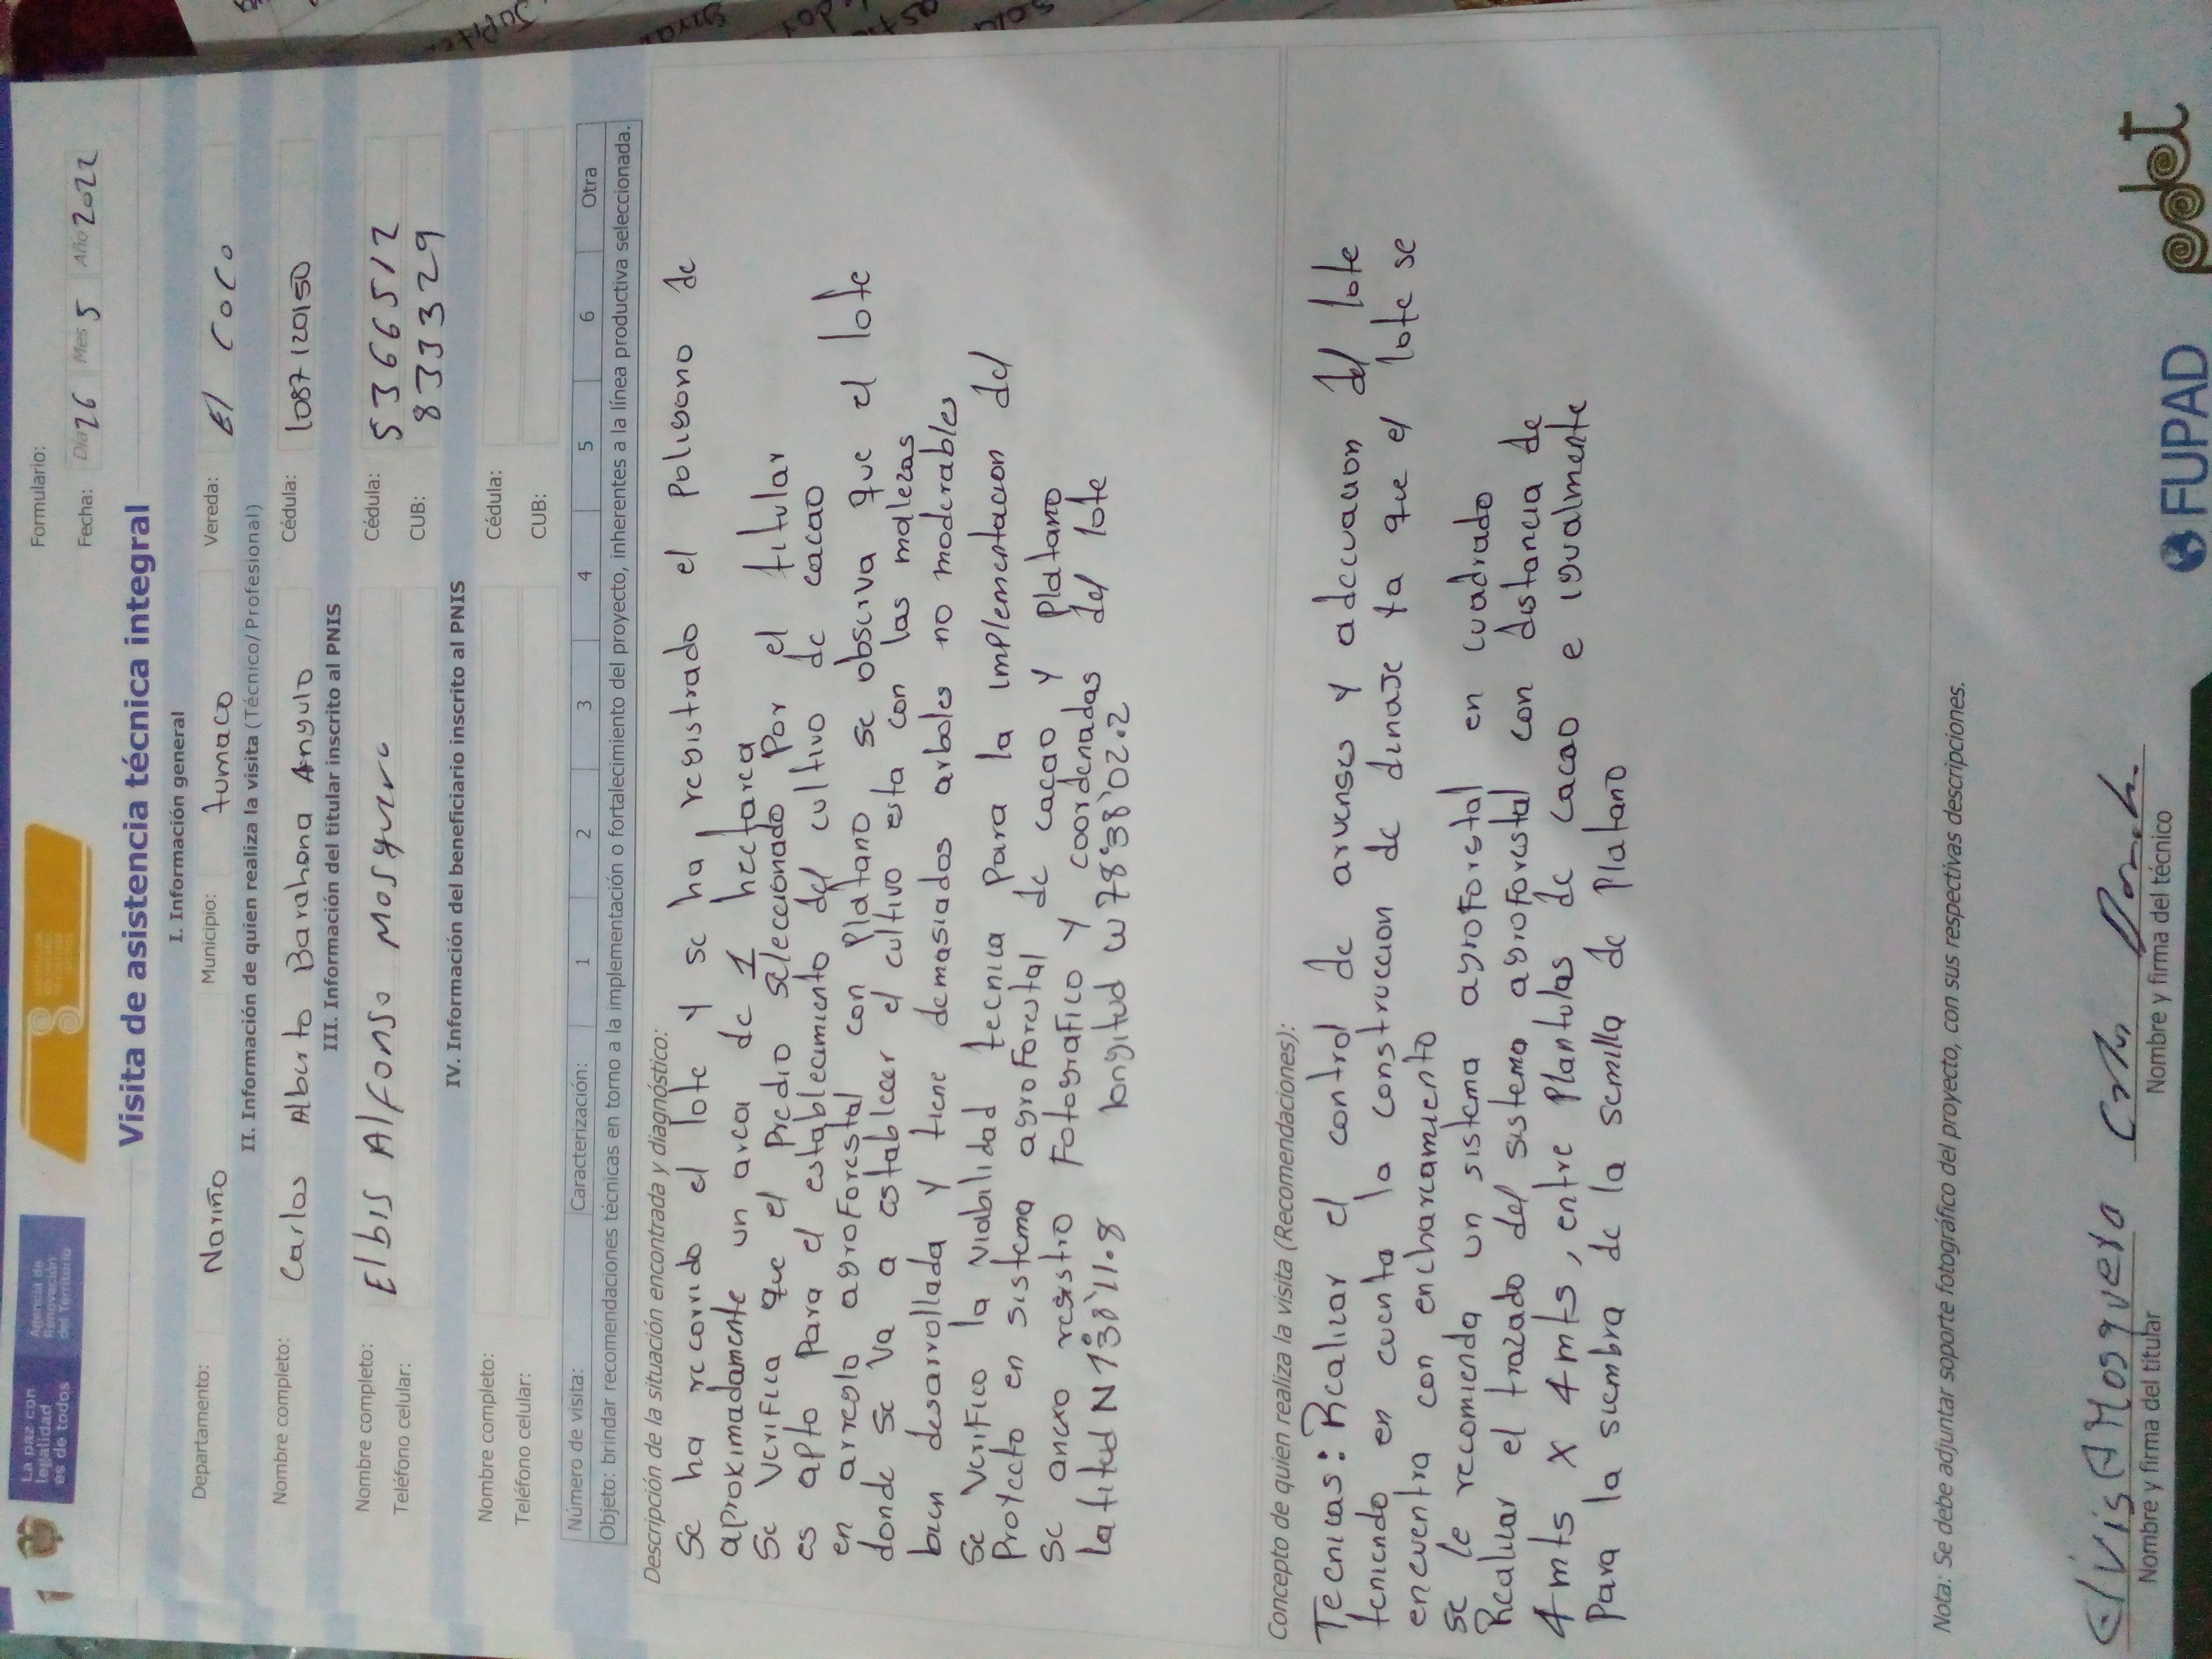 La paz con
legalidad
es de todos
Agencia de
Renovación
del Territorio
Formulario:
Fecha: Día 26 Mes 5 Año 2022
Visita de asistencia técnica integral
I. Información general
Departamento: Nariño Municipio: tumaco Vereda: El coco
II. Información de quien realiza la visita (Técnico/Profesional)
Nombre completo: Carlos Alberto Barahona Angulo Cédula: 1087120150
III. Información del titular inscrito al PNIS
Nombre completo: Elbis Alfonso Mosquera Cédula: 5366512
Teléfono celular: CUB: 833329
IV. Información del beneficiario inscrito al PNIS
Nombre completo: Cédula:
Teléfono celular: CUB:
Número de visita: Caracterización: 1 2 3 4 5 6 Otra
Objeto: brindar recomendaciones técnicas en torno a la implementación o fortalecimiento del proyecto, inherentes a la línea productiva seleccionada.
Descripción de la situación encontrada y diagnóstico:
Se ha recorrido el lote y se ha registrado el poligono de
aproximadamente un area de 1 hectarea
Se verifica que el predio seleccionado por el titular
es apto para el establecimiento del cultivo de cacao
en arreglo agroforestal con platano se observa que el lote
donde se va a establecer el cultivo esta con las malezas
bien desarrollada y tiene demasiados arboles no moderables
Se verifico la viabilidad tecnica para la implementacion del
Proyecto en sistema agroforestal de cacao y platano
Se anexo registro fotografico y coordenadas del lote
latitud N 1°38'11.8 longitud w 78°38'02.2
Concepto de quien realiza la visita (Recomendaciones):
Tecnicas: Realizar el control de arvenses y adecuacion del lote
teniendo en cuenta la construccion de drenaje ya que el lote se
encuentra con encharcamiento
Se le recomienda un sistema agroforestal en cuadrado
Realizar el trazado del sistema agroforestal con distancia de
4 mts x 4 mts, entre plantulas de cacao e igualmente
Para la siembra de la semilla de platano
Nota: Se debe adjuntar soporte fotográfico del proyecto, con sus respectivas descripciones.
Elvis A Mosquera
Nombre y firma del titular
Nombre y firma del técnico
FUPAD
pdet